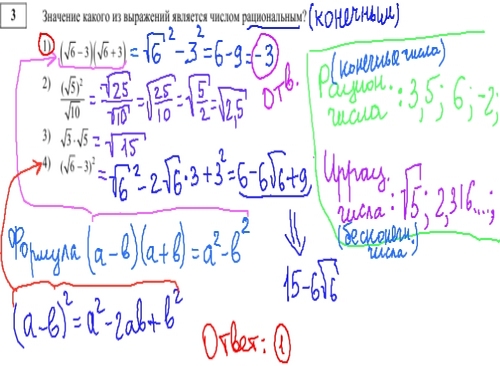 3 Значение какого из выражений является числом рациональным? (конечным)
1) (√6 − 3)(√6 + 3) = √6² − 3² = 6 − 9 = −3
Отв.
2) (√5)²/√10 = √25/√10 = √(25/10) = √(5/2) = √2,5
3) √3 · √5 = √15
4) (√6 − 3)² = √6² − 2√6·3 + 3² = 6 − 6√6 + 9,
⇓
15 − 6√6
(конечные числа)
Рацион. числа: 3,5; 6; −2;
Иррац. числа: √5; 2,316....;
(бесконечн. числа)
Формула (а − в)(а + в) = а² − в²
(а − в)² = а² − 2ав + в²
Ответ: 1